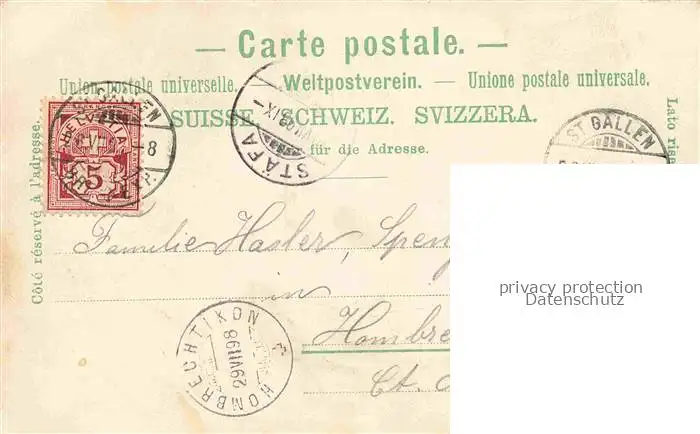 — Carte postale. —
Union postale universelle. — Weltpostverein. — Unione postale universale.
SUISSE. SCHWEIZ. SVIZZERA.
für die Adresse.
Côté réservé à l'adresse.
Lato rise
HELVETIA
5
GALLEN
-8
STÄFA
ST. GALLEN
Familie Hasler, Speng
in
Hombre
Ct.
HOMBRECHTIKON
29 VII 98
privacy protection
Datenschutz